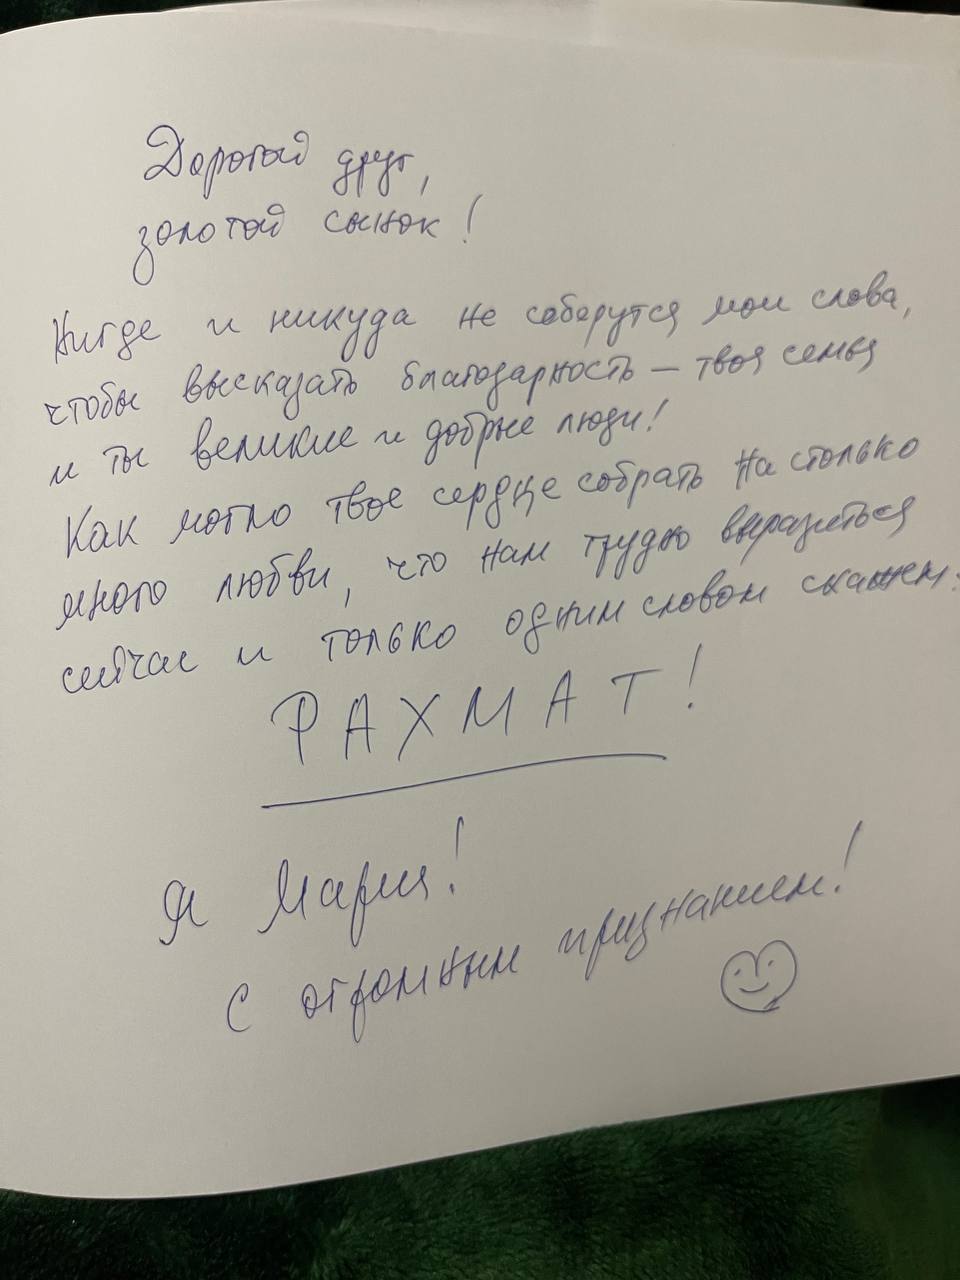 Дорогой друг,
золотой сынок!
Нигде и никуда не соберутся мои слова,
чтобы высказать благодарность — твоя семья
и ты великие и добрые люди!
Как могло твое сердце собрать на столько
много любви, что нам трудно выразиться
сейчас и только одним словом скажем:
РАХМАТ!
Я Мария!
С огромным признанием!